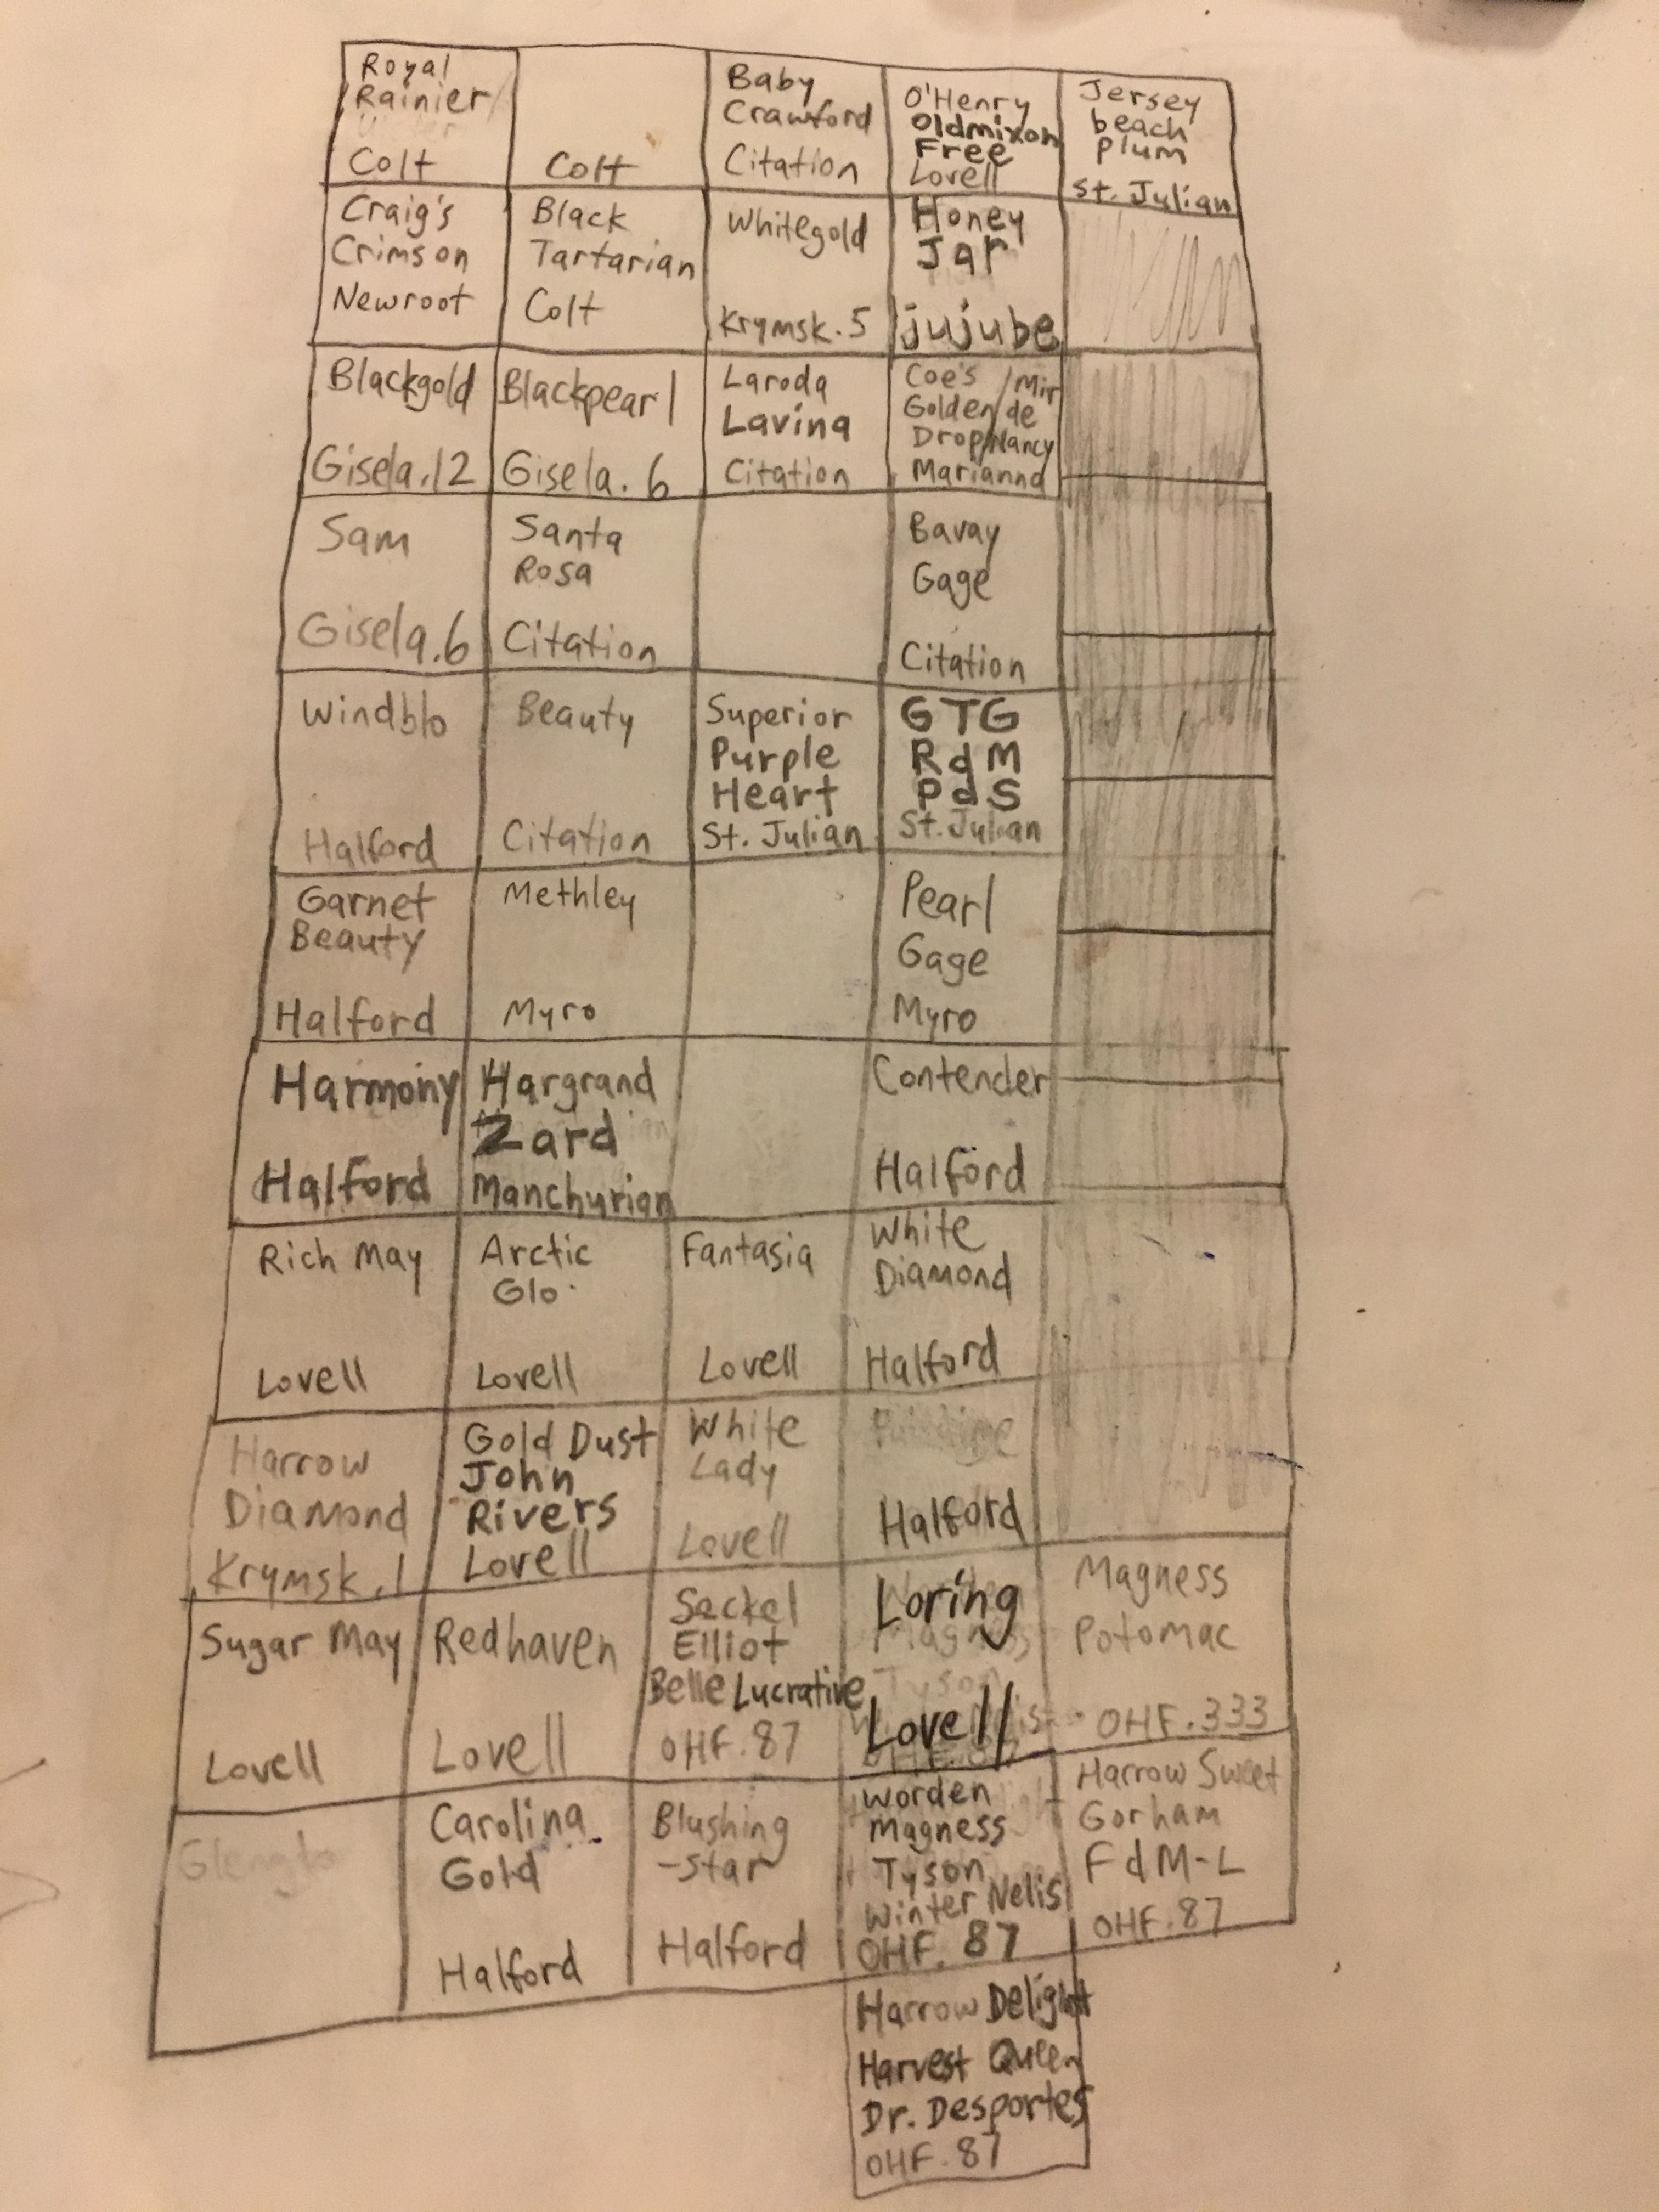 Royal
Rainier
Colt
Colt
Baby
Crawford
Citation
O'Henry
Oldmixon
Free
Lovell
Jersey
beach
Plum
St. Julian
Craig's
Crimson
Newroot
Black
Tartarian
Colt
Whitegold
Krymsk.5
Honey
Jar
jujube
Blackgold
Gisela.12
Blackpearl
Gisela.6
Laroda
Lavina
Citation
Coe's /Mir
Golden/de
Drop/Nancy
Marianna
Sam
Gisela.6
Santa
Rosa
Citation
Bavay
Gage
Citation
Windblo
Halford
Beauty
Citation
Superior
Purple
Heart
St. Julian
GTG
RdM
PdS
St. Julian
Garnet
Beauty
Halford
Methley
Myro
Pearl
Gage
Myro
Harmony
Halford
Hargrand
Zard
Manchurian
Contender
Halford
Rich May
Lovell
Arctic
Glo
Lovell
Fantasia
Lovell
White
Diamond
Halford
Harrow
Diamond
Krymsk.1
Gold Dust
John
Rivers
Lovell
White
Lady
Lovell
Halford
Sugar May
Lovell
Redhaven
Lovell
Seckel
Elliot
Belle Lucrative
OHF.87
Loring
Lovell
Magness
Potomac
OHF.333
Carolina
Gold
Halford
Blushing
-Star
Halford
Worden
Magness
Tyson
Winter Nelis
OHF.87
Harrow Sweet
Gorham
FdM-L
OHF.87
Harrow Delight
Harvest Queen
Dr. Desportes
OHF.87